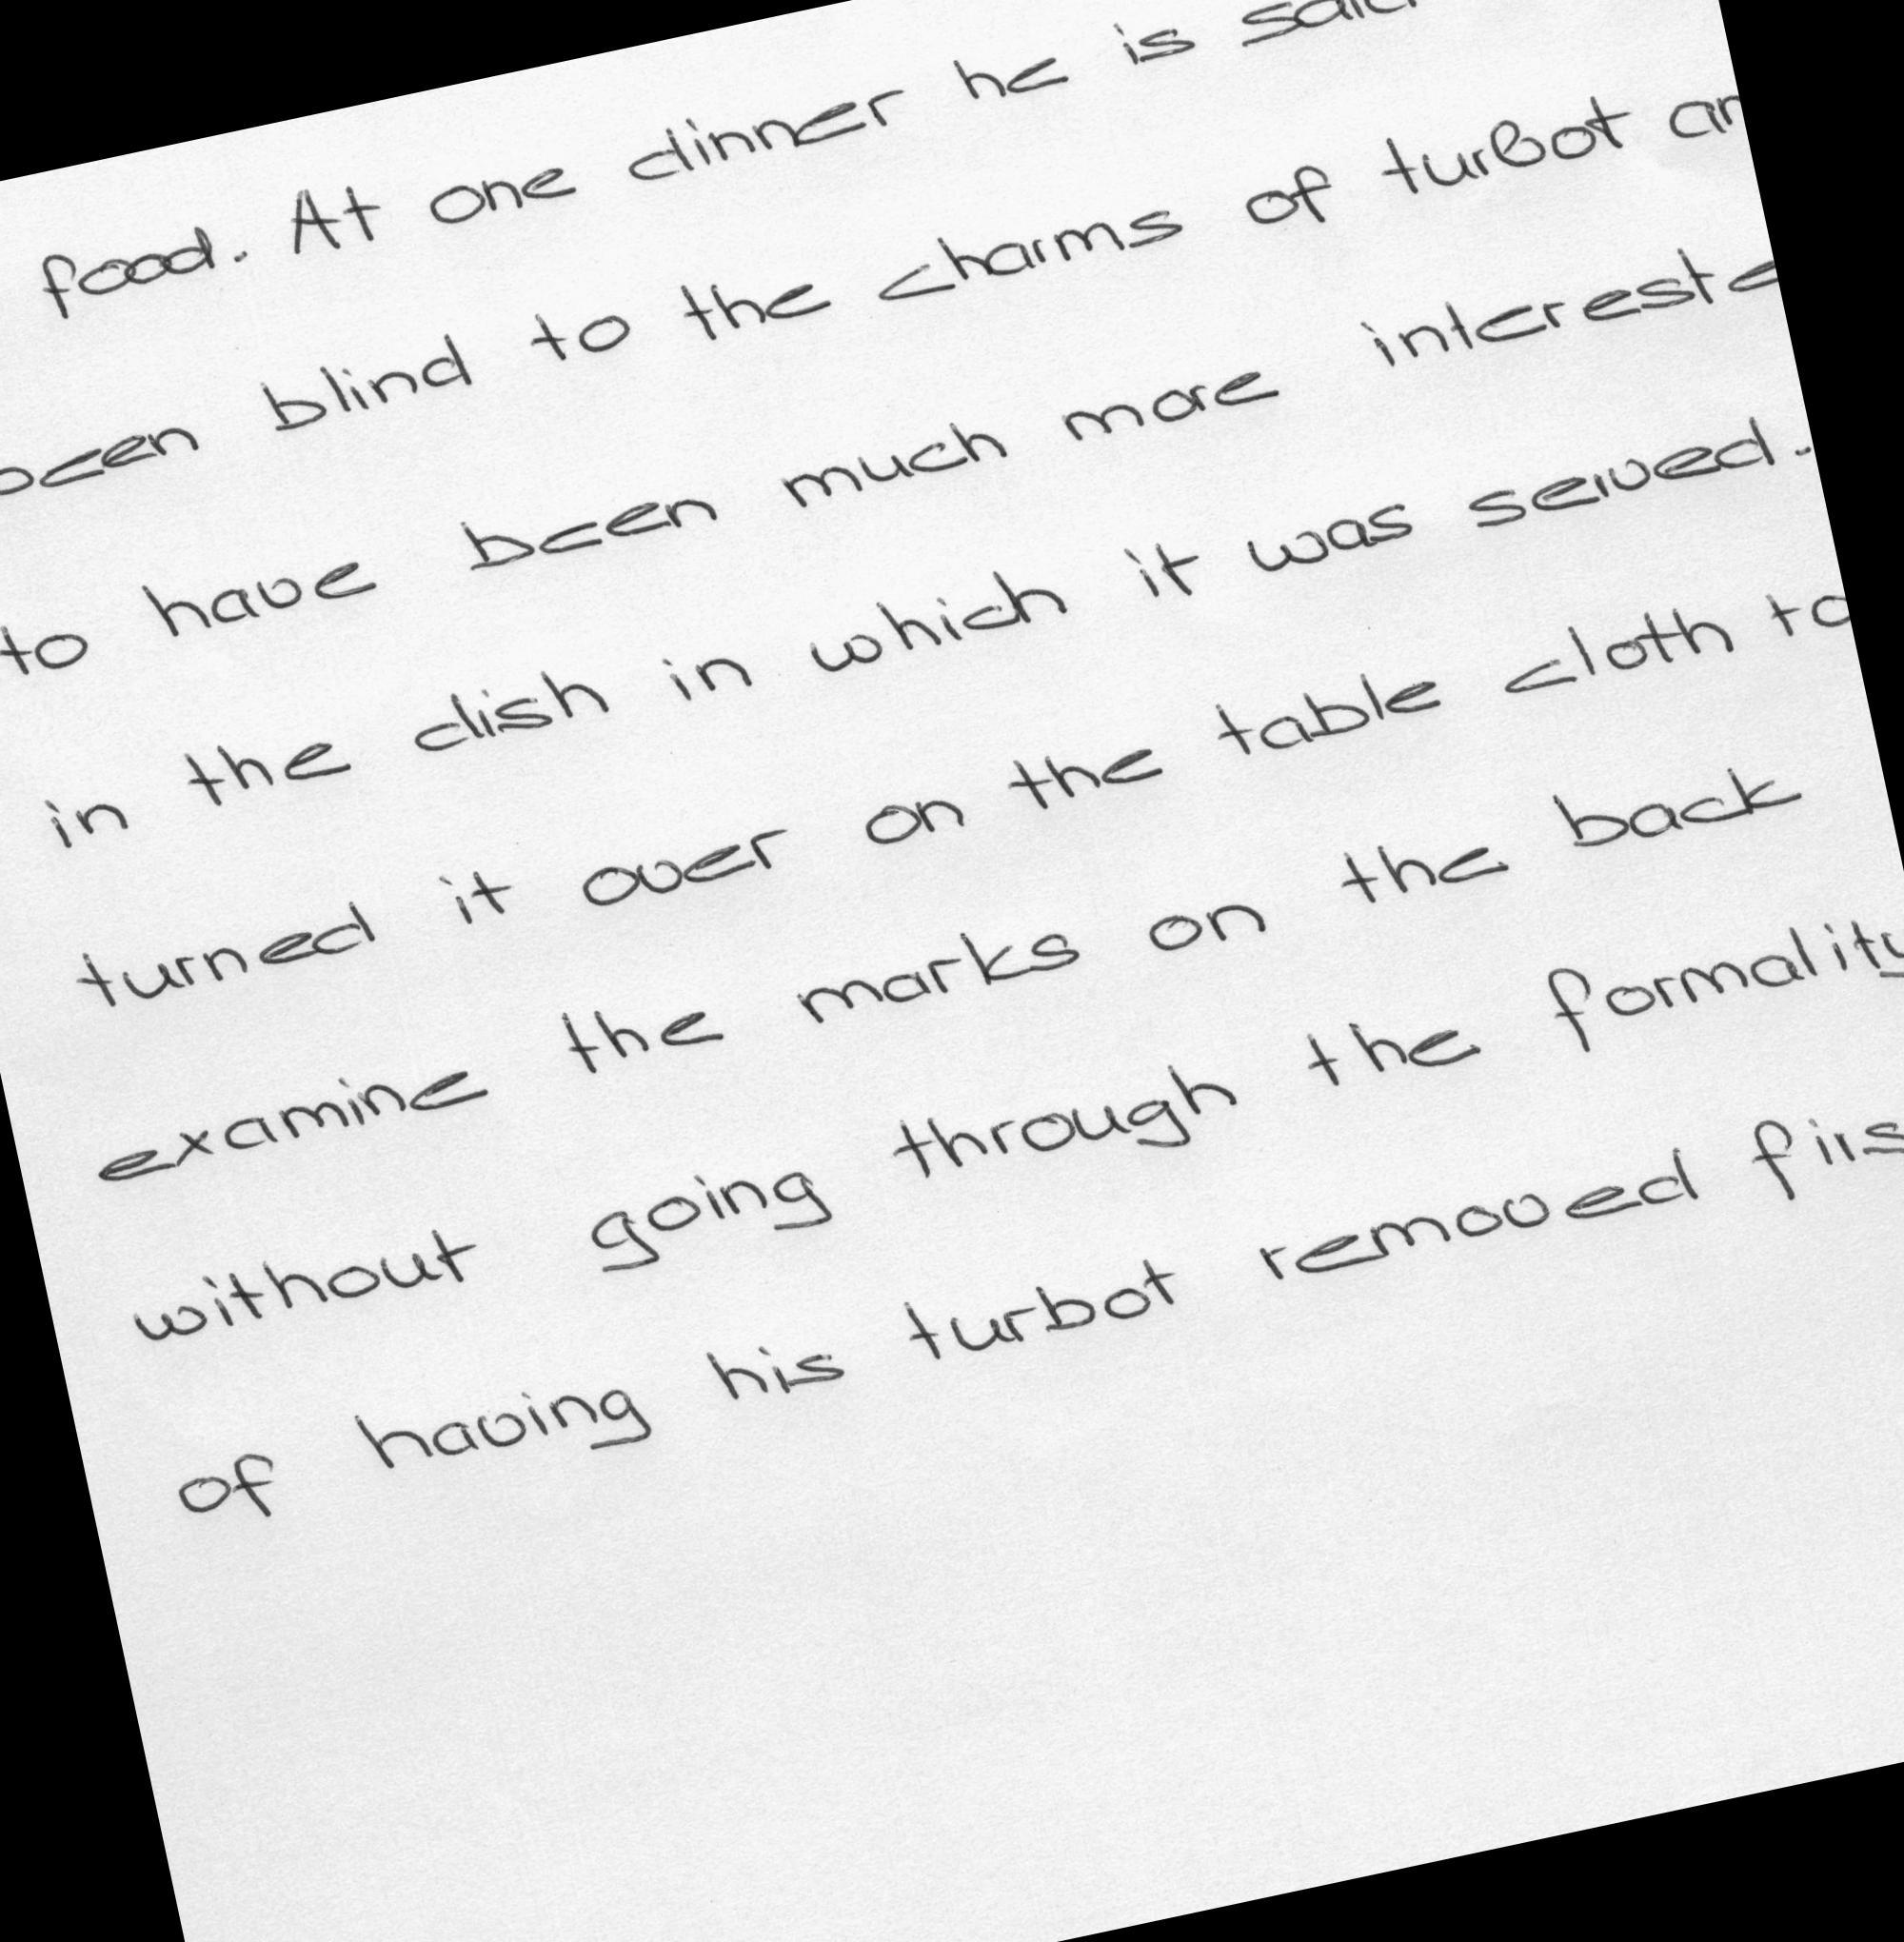 food. At one dinner he is said
been blind to the charms of turbot an
to have been much more intereste
in the dish in which it was served.
turned it over on the table cloth to
examine the marks on the back
without going through the formality
of having his turbot removed firs